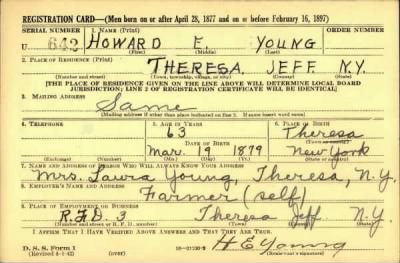 REGISTRATION CARD—(Men born on or after April 28, 1877 and on or before February 16, 1897)
SERIAL NUMBER 1. NAME (Print) ORDER NUMBER
U 642 HOWARD E. YOUNG
(First) (Middle) (Last)
2. PLACE OF RESIDENCE (Print)
THERESA, JEFF. N.Y.
(Number and street) (Town, township, village, or city) (County) (State)
[THE PLACE OF RESIDENCE GIVEN ON THE LINE ABOVE WILL DETERMINE LOCAL BOARD
JURISDICTION; LINE 2 OF REGISTRATION CERTIFICATE WILL BE IDENTICAL]
3. MAILING ADDRESS
Same
[Mailing address if other than place indicated on line 2. If same insert word same]
4. TELEPHONE 5. AGE IN YEARS 6. PLACE OF BIRTH
63 Theresa
DATE OF BIRTH (Town or county)
Mar. 19 1879 New York
(Exchange) (Number) (Mo.) (Day) (Yr.) (State or country)
7. NAME AND ADDRESS OF PERSON WHO WILL ALWAYS KNOW YOUR ADDRESS
Mrs. Laura Young, Theresa, N.Y.
8. EMPLOYER'S NAME AND ADDRESS
Farmer (self)
9. PLACE OF EMPLOYMENT OR BUSINESS
R.F.D. 3 Theresa Jeff. N.Y.
(Number and street or R. F. D. number) (Town) (County) (State)
I AFFIRM THAT I HAVE VERIFIED ABOVE ANSWERS AND THAT THEY ARE TRUE.
H E Young
D. S. S. Form 1
(Revised 4-1-42) (over) (Registrant's signature)